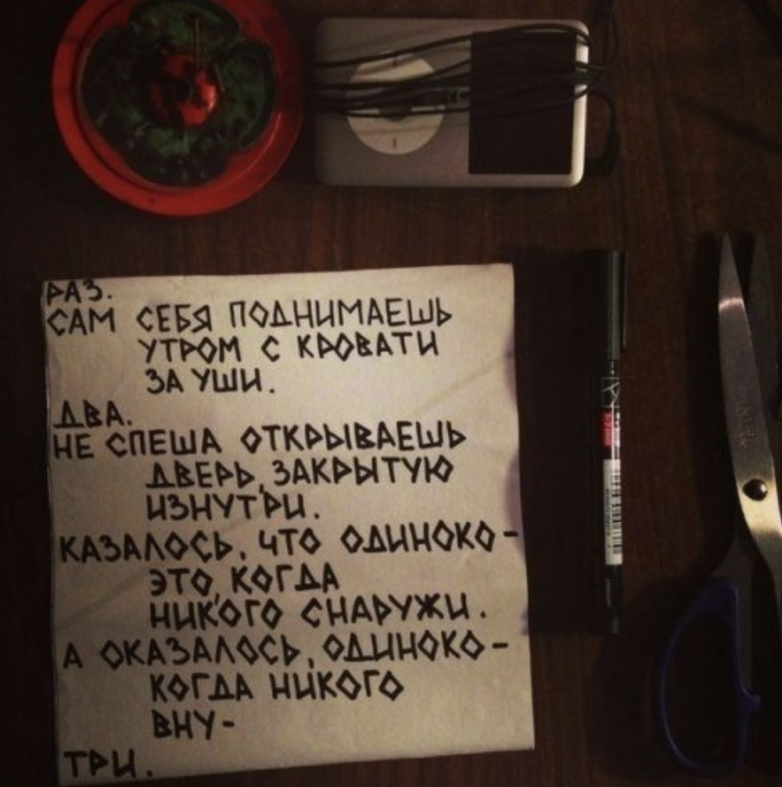 РАЗ.
САМ СЕБЯ ПОДНИМАЕШЬ
УТРОМ С КРОВАТИ
ЗА УШИ.
ДВА.
НЕ СПЕША ОТКРЫВАЕШЬ
ДВЕРЬ, ЗАКРЫТУЮ
ИЗНУТРИ.
КАЗАЛОСЬ, ЧТО ОДИНОКО-
ЭТО, КОГДА
НИКОГО СНАРУЖИ.
А ОКАЗАЛОСЬ, ОДИНОКО-
КОГДА НИКОГО
ВНУ-
ТРИ.